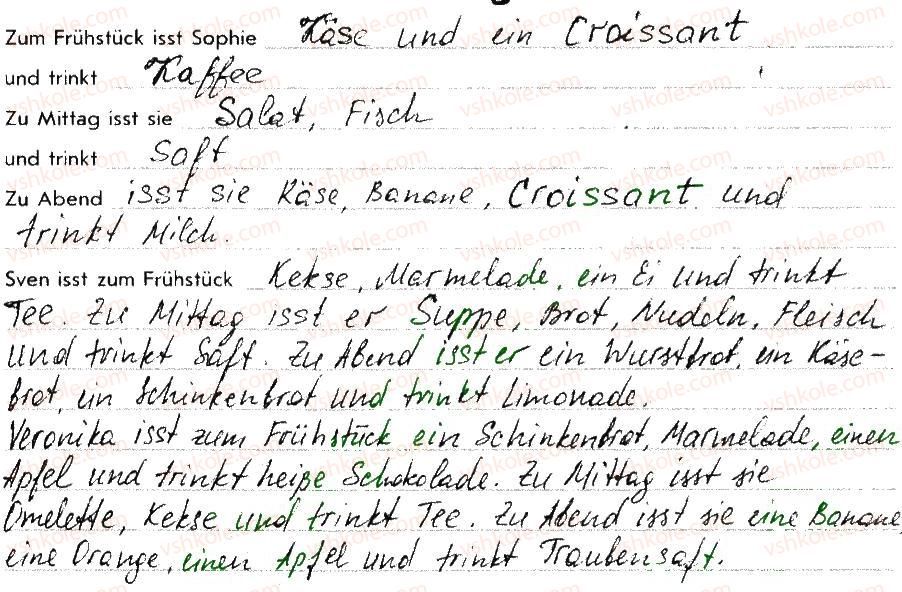 Zum Frühstück isst Sophie Käse und ein Croissant
und trinkt Kaffee
Zu Mittag isst sie Salat, Fisch
und trinkt Saft
Zu Abend isst sie Käse, Banane, Croissant und
trinkt Milch.
Sven isst zum Frühstück Kekse, Marmelade, ein Ei und trinkt
Tee. Zu Mittag isst er Suppe, Brot, Nudeln, Fleisch
und trinkt Saft. Zu Abend isst er ein Wurstbrot, ein Käse-
brot, ein Schinkenbrot und trinkt Limonade.
Veronika isst zum Frühstück ein Schinkenbrot, Marmelade, einen
Apfel und trinkt heiße Schokolade. Zu Mittag isst sie
Omelette, Kekse und trinkt Tee. Zu Abend isst sie eine Banane,
eine Orange, einen Apfel und trinkt Traubensaft.